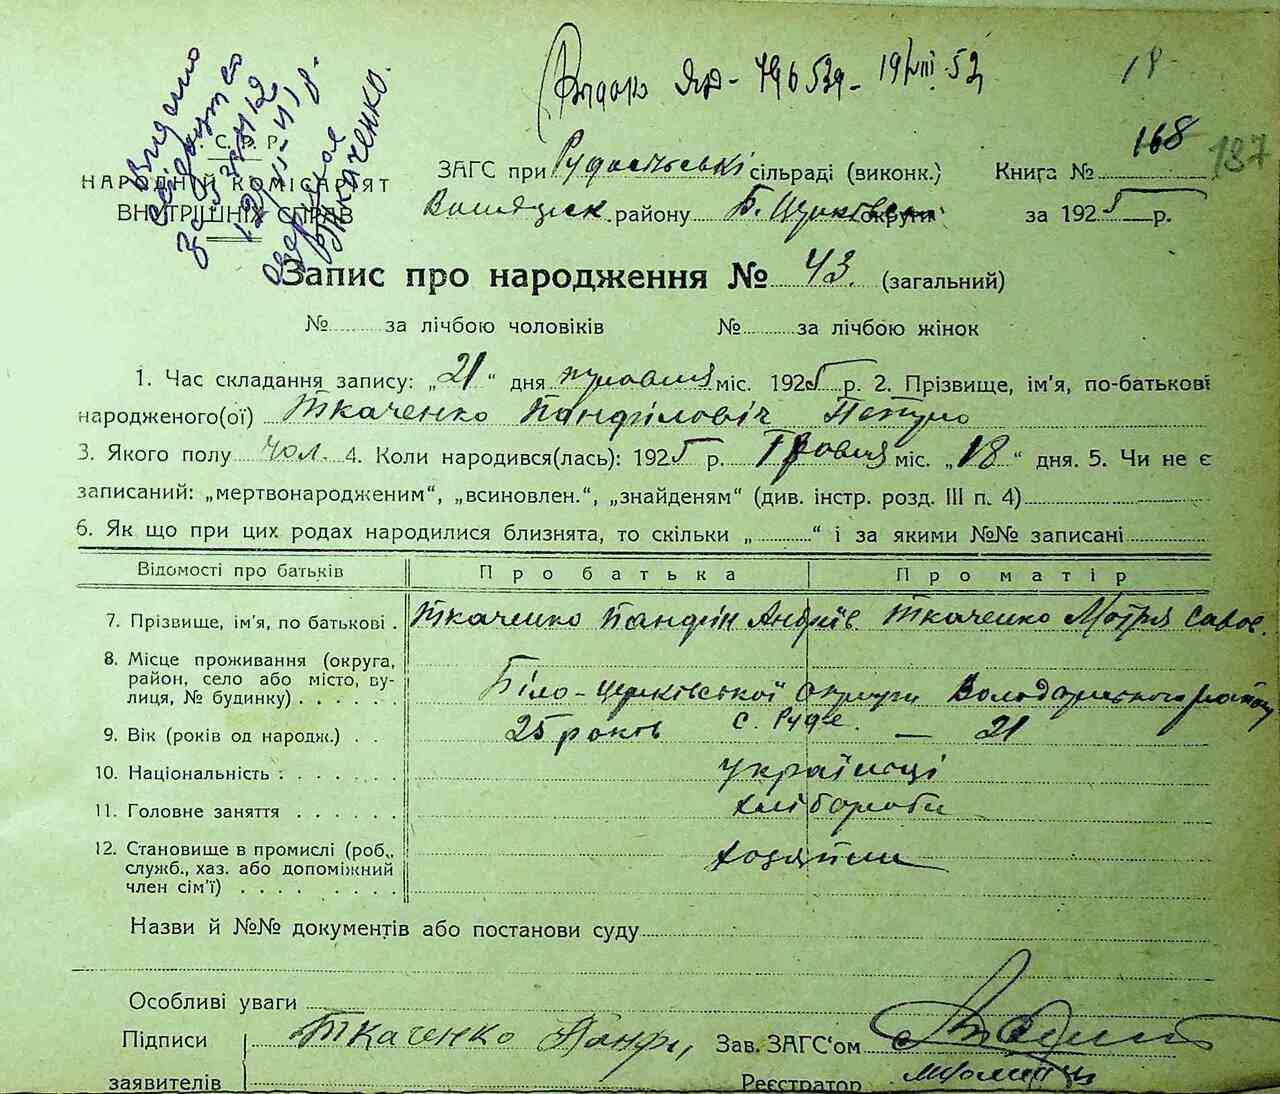 18
Видано ЯР- 796539- 19/VIII. 52
Видано
свідоцтво
Ткаченко.
С. Р. Р.
НАРОДНІЙ КОМІСАРІЯТ
ВНУТРІШНІХ СПРАВ
ЗАГС при сільраді (виконк.)
Книга № 168 187
району Б. Церків. округи
за 1925 р.
Запис про народження № 43. (загальний)
№ за лічбою чоловіків № за лічбою жінок
1. Час складання запису: „21“ дня травня міс. 1925 р. 2. Прізвище, ім'я, по-батькові
народженого(ої) Ткаченко Панфілович Петро
3. Якого полу чол. 4. Коли народився(лась): 1925 р. Травня міс. „18“ дня. 5. Чи не є
записаний: „мертвонародженим“, „всиновлен.“, „знайденям“ (див. інстр. розд. III п. 4)
6. Як що при цих родах народилися близнята, то скільки „ “ і за якими №№ записані
Відомості про батьків Про батька Про матір
7. Прізвище, ім'я, по батькові . Ткаченко Панфіл Андріїв. Ткаченко Мотря Савов.
8. Місце проживання (округа,
район, село або місто, ву-
лиця, № будинку) . . . . . . Біло-церківської округи Володарського району
с. Руде.
9. Вік (років од народж.) . . 25 років — 21
10. Національність . . . . . . . українці
11. Головне заняття . . . . . . хлібороби
12. Становище в промислі (роб.,
служб., хаз. або допоміжний
член сім'ї) . . . . . . . . хазяйни
Назви й №№ документів або постанови суду
Особливі уваги
Підписи
заявителів
Ткаченко Панфи,
Зав. ЗАГС'ом
Реєстратор